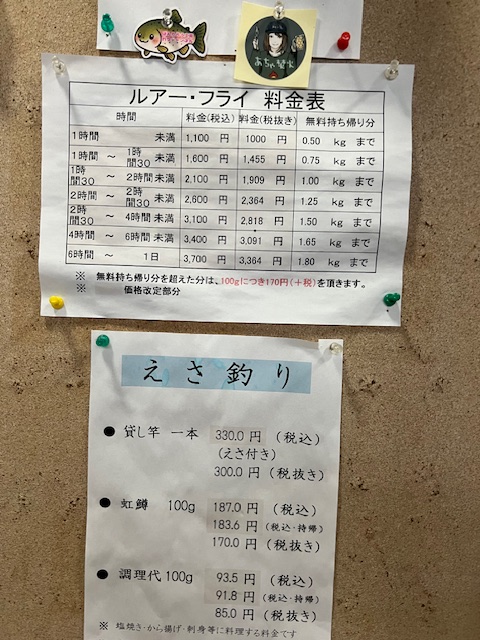 あちゃ螢火
ルアー・フライ 料金表
時間 料金(税込) 料金(税抜き) 無料持ち帰り分
1時間 未満 1,100 円 1000 円 0.50 kg まで
1時間 ～ 1時間30 未満 1,600 円 1,455 円 0.75 kg まで
1時間30 ～ 2時間 未満 2,100 円 1,909 円 1.00 kg まで
2時間 ～ 2時間30 未満 2,600 円 2,364 円 1.25 kg まで
2時間30 ～ 4時間 未満 3,100 円 2,818 円 1.50 kg まで
4時間 ～ 6時間 未満 3,400 円 3,091 円 1.65 kg まで
6時間 ～ 1日 3,700 円 3,364 円 1.80 kg まで
※ 無料持ち帰り分を超えた分は、100gにつき170円(+税)を頂きます。
※ 価格改定部分
えさ釣り
● 貸し竿 一本 330.0 円 (税込)
(えさ付き)
300.0 円 (税抜き)
● 虹鱒 100g 187.0 円 (税込)
183.6 円 (税込・持帰)
170.0 円 (税抜き)
● 調理代 100g 93.5 円 (税込)
91.8 円 (税込・持帰)
85.0 円 (税抜き)
※ 塩焼き・から揚げ・刺身等に料理する料金です